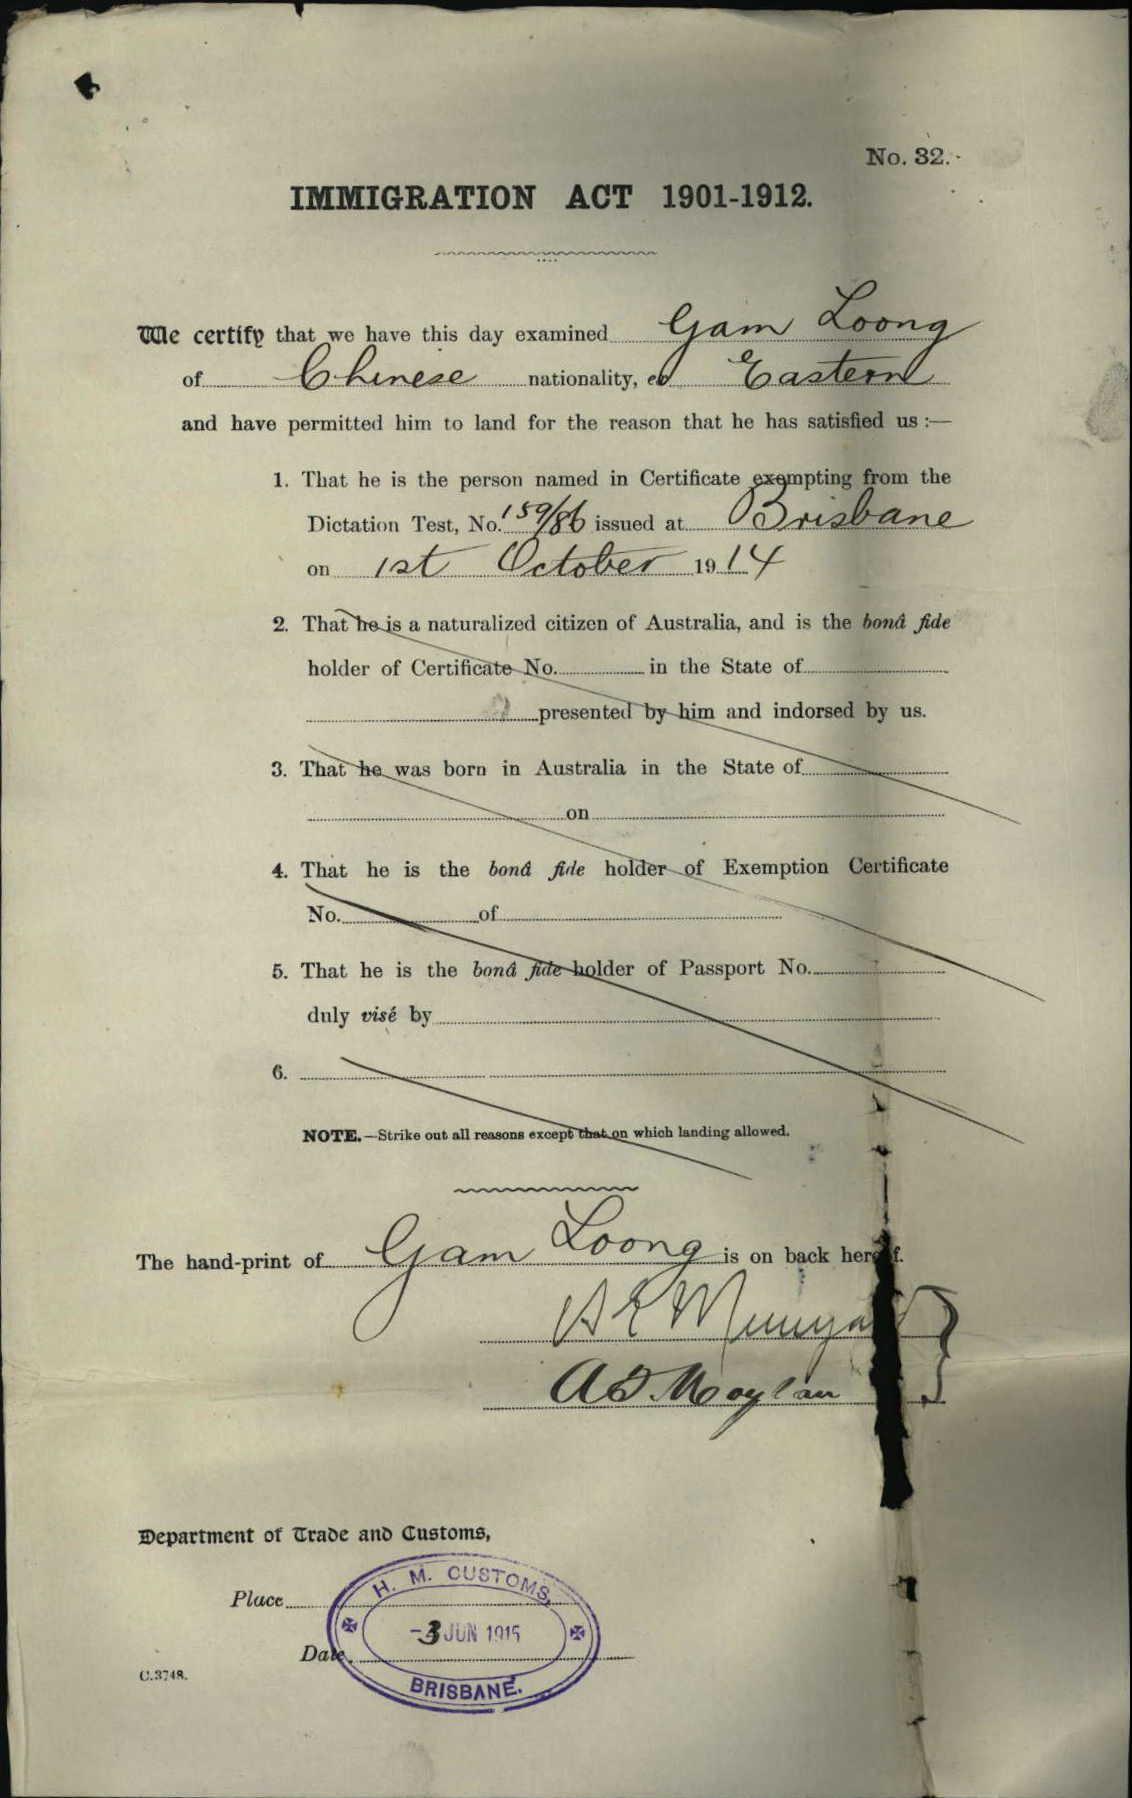 No. 32.
IMMIGRATION ACT 1901-1912.
We certify that we have this day examined Gam Loong
of Chinese nationality, ex Eastern
and have permitted him to land for the reason that he has satisfied us :—
1. That he is the person named in Certificate exempting from the
Dictation Test, No. 159/86 issued at Brisbane
on 1st October 1914
2. That he is a naturalized citizen of Australia, and is the bonâ fide
holder of Certificate No. in the State of
presented by him and indorsed by us.
3. That he was born in Australia in the State of
on
4. That he is the bonâ fide holder of Exemption Certificate
No. of
5. That he is the bonâ fide holder of Passport No.
duly visé by
6.
NOTE.—Strike out all reasons except that on which landing allowed.
The hand-print of Gam Loong is on back hereof.
Moylan
Department of Trade and Customs,
Place
H. M. CUSTOMS,
-3 JUN 1915
Date
BRISBANE.
C.3748.